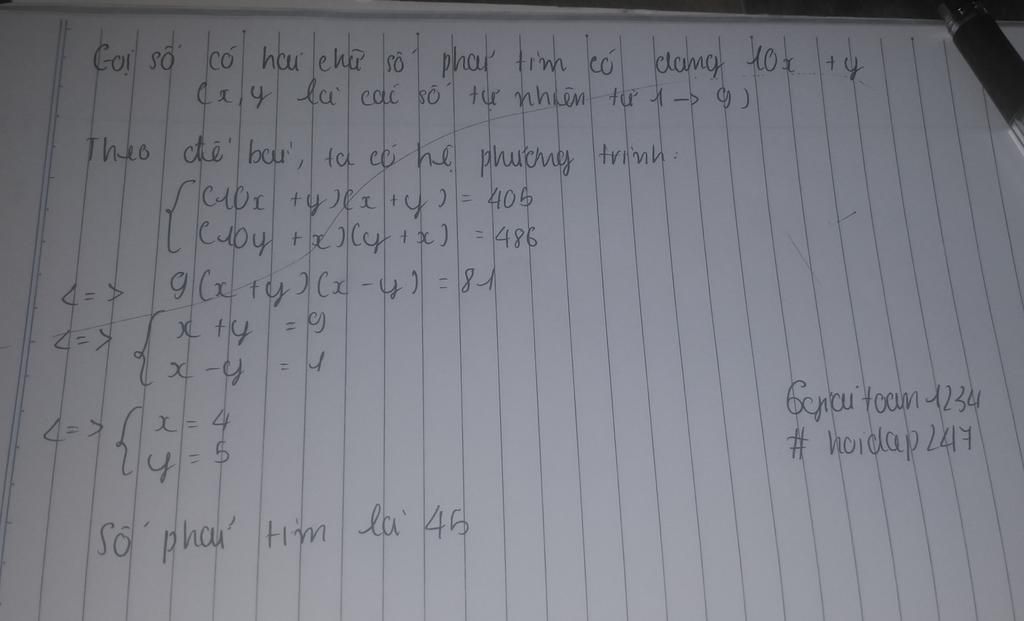 Gọi số có hai chữ số phải tìm có dạng 10x + y
(x, y là các số tự nhiên từ 1 -> 9)
Theo đề bài, ta có hệ phương trình:
{ (10x + y)(x + y) = 405
{ (10y + x)(y + x) = 486
<=> 9(x + y)(x - y) = 81
<=> { x + y = 9
{ x - y = 1
<=> { x = 4
{ y = 5
Số phải tìm là 45
Ggiaitoan1234
# hoidap247